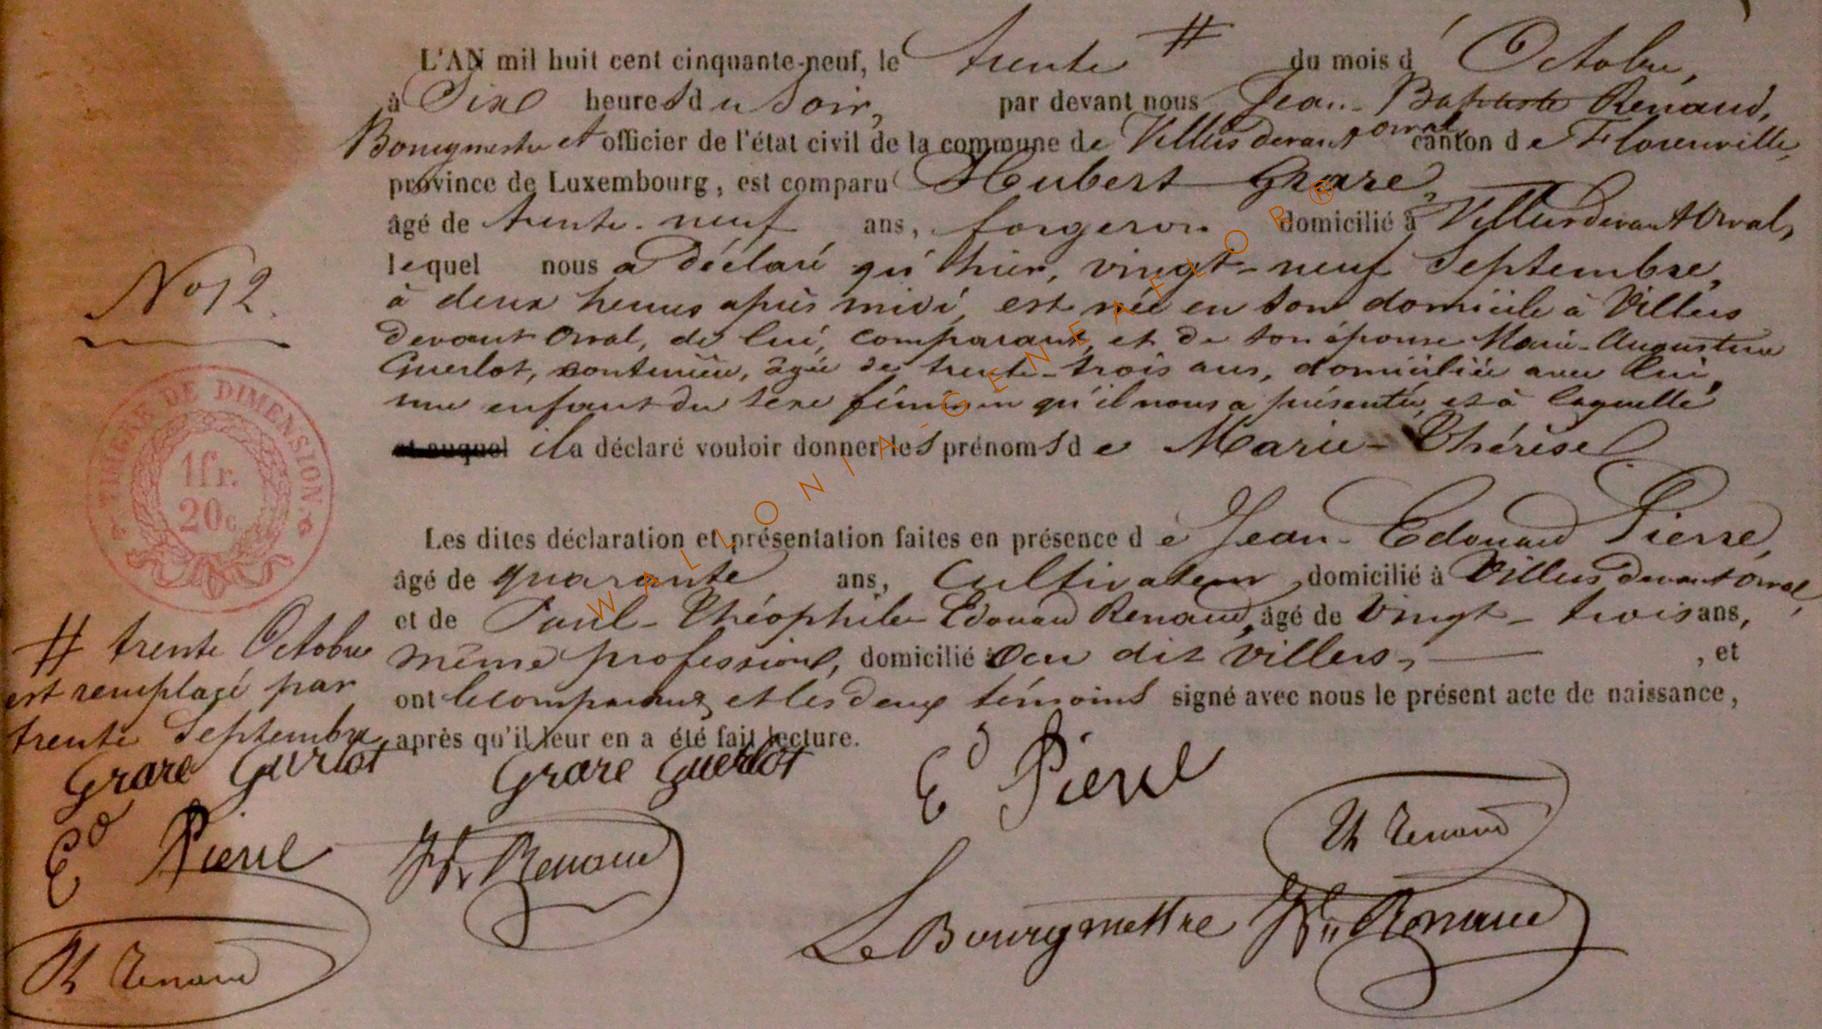 L'AN mil huit cent cinquante-neuf, le trente # du mois d'Octobre,
à Six heures du Soir, par devant nous Jean-Baptiste Renaud,
Bourgmestre et officier de l'état civil de la commune de Villers devant orval canton de Florenville,
province de Luxembourg, est comparu Hubert Grare,
âgé de trente-neuf ans, forgeron domicilié à Villers devant Orval,
lequel nous a déclaré qu'hier, vingt-neuf Septembre,
à deux heures après midi, est née en son domicile à Villers
devant Orval, de lui, comparant, et de son épouse Marie-Augustine
Guerlot, âgée de trente-trois ans, domiciliée avec lui,
une enfant du sexe féminin qu'il nous a présentée, et à laquelle
et auquel il a déclaré vouloir donner les prénoms de Marie-Thérèse
Les dites déclaration et présentation faites en présence de Jean-Edouard Pierre,
âgé de quarante ans, Cultivateur, domicilié à Villers devant Orval,
et de Paul-Théophile Edouard Renaud, âgé de Vingt-trois ans,
même profession, domicilié au dit Villers, , et
ont le comparant et les deux témoins signé avec nous le présent acte de naissance,
après qu'il leur en a été fait lecture.
No 12.
TIMBRE DE DIMENSION.
1fr.
20c
# trente Octobre
est remplacé par
trente Septembre
Grare Guerlot
Ed Pierre
Th Renaud
Grare Guerlot
Renaud
Ed Pierre
Th Renaud
Le Bourgmestre Renaud
WALLONIA-GENEAFLOR®